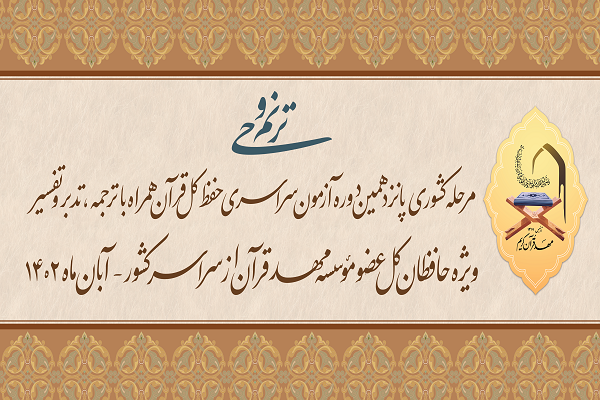 ترنم وحی
مرحله کشوری پانزدهمین دوره آزمون سراسری حفظ کل قرآن همراه با ترجمه، تدبر و تفسیر
ویژه حافظان کل عضو مؤسسه مهد قرآن از سراسر کشور - آبان ماه ۱۴۰۲
مهد قرآن کریم